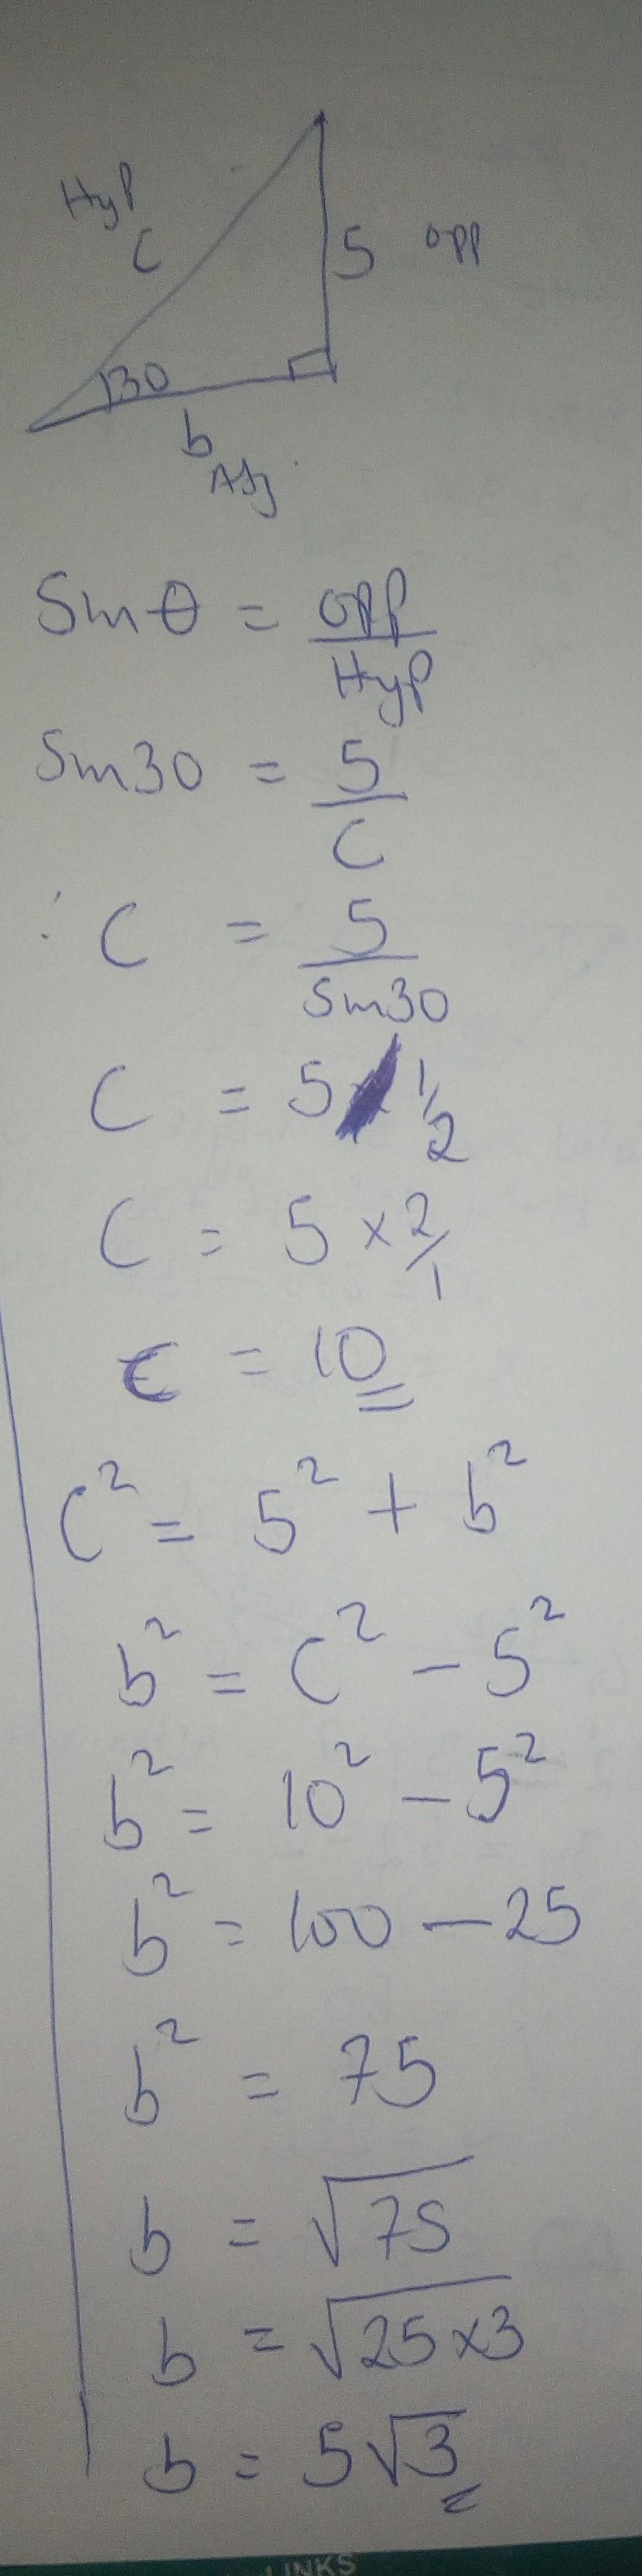 Hyp
C
5 opp
30
b
Adj
Sin θ = opp/Hyp
Sin30 = 5/C
∴ C = 5/Sin30
C = 5 / 1/2
C = 5 × 2/1
C = 10
C² = 5² + b²
b² = C² - 5²
b² = 10² - 5²
b² = 100 - 25
b² = 75
b = √75
b = √25×3
b = 5√3
LINKS